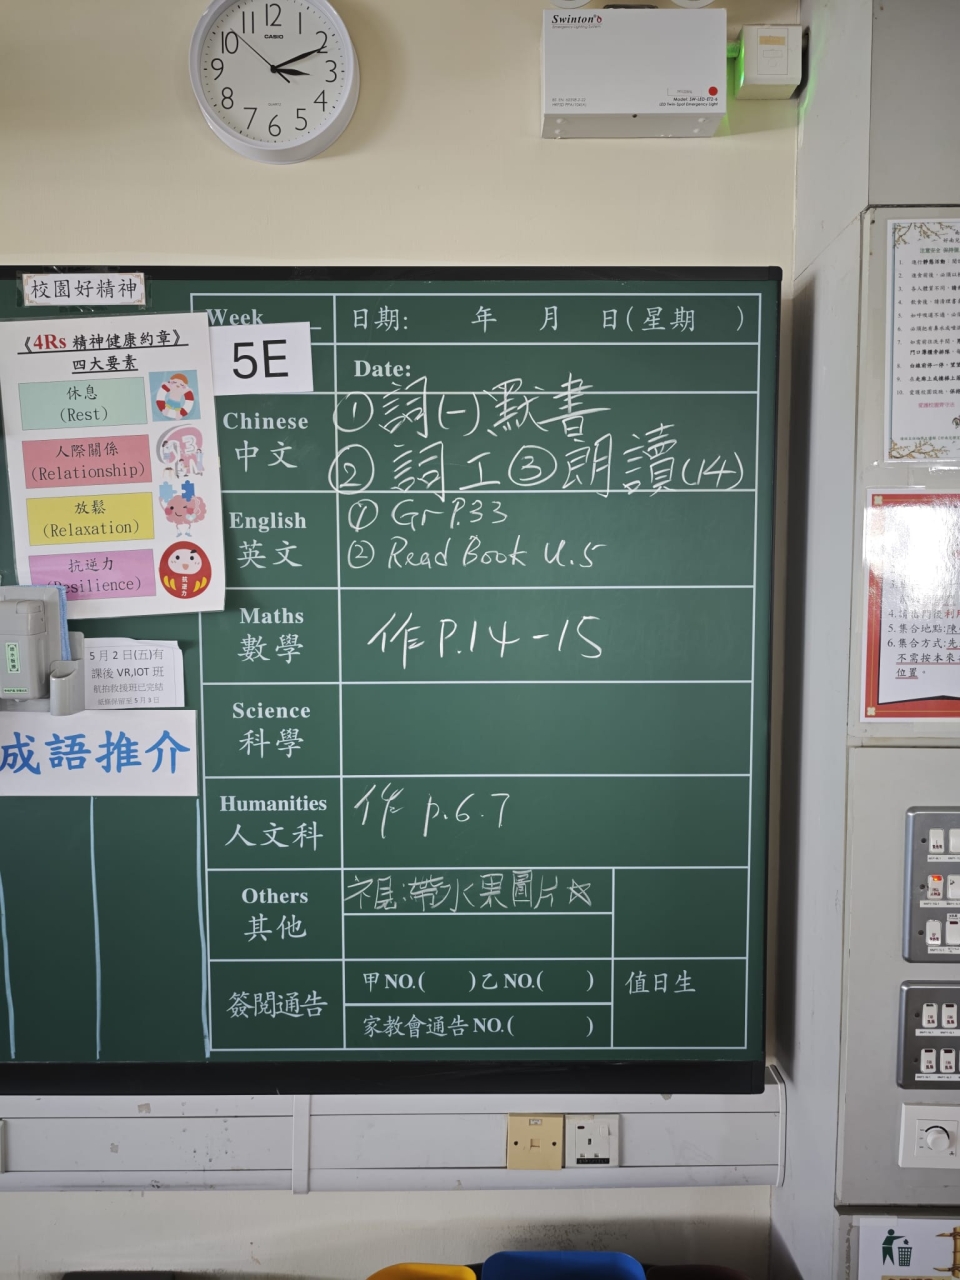 12
11
10
9
8
7
6
5
4
3
2
1
CASIO
QUARTZ
Swinton
Emergency Lighting System
LED Twin Spot Emergency Light
校園好精神
《4Rs 精神健康約章》
四大要素
休息
(Rest)
人際關係
(Relationship)
放鬆
(Relaxation)
抗逆力
(Resilience)
抗逆力
5月2日(五)有
課後 VR,IOT 班
航拍救援班已完結
成語推介
Week
5E
日期: 年 月 日(星期 )
Date:
Chinese
中文
①詞(一)默書
②詞工③朗讀(14)
English
英文
① Gr P.33
② Read Book U.5
Maths
數學
作 P.14-15
Science
科學
Humanities
人文科
作 p.6.7
Others
其他
視:帶水果圖片☆
簽閱通告
甲NO.( )乙NO.( )
家教會通告NO.( )
值日生
4.
5. 集合地點:
6. 集合方式:先
不需按本來
位置。